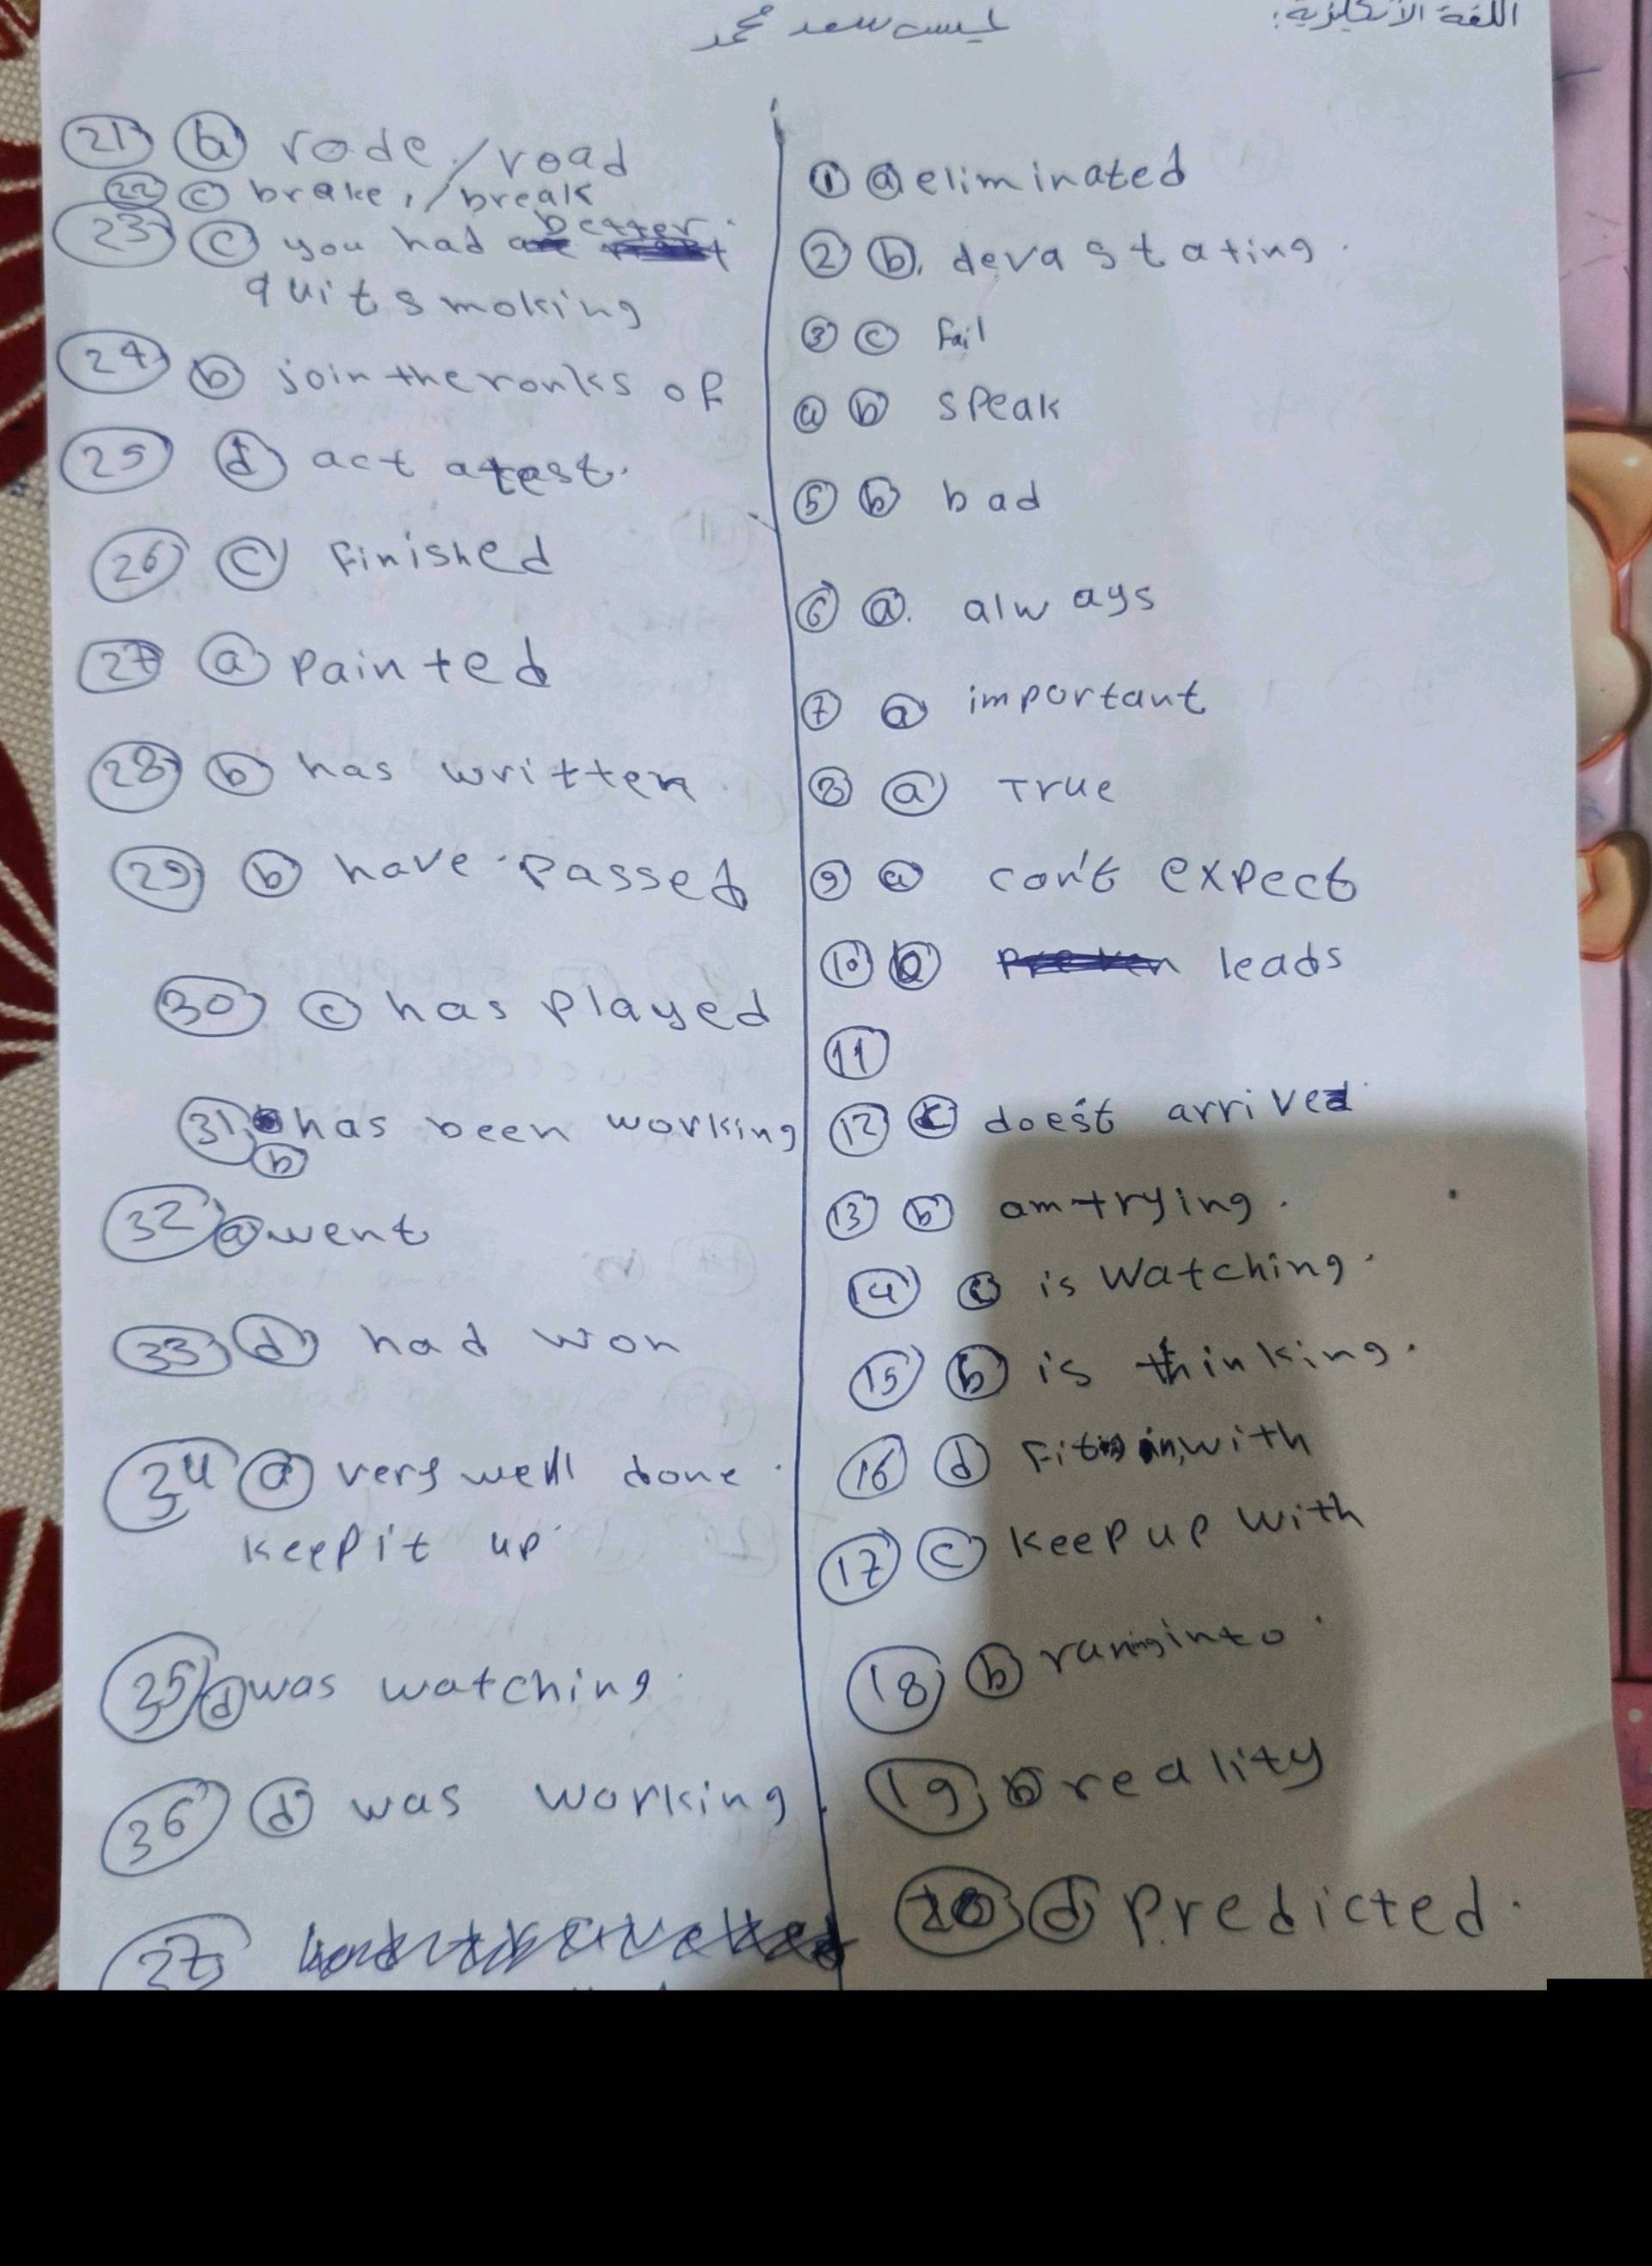 اللغة الانكليزية:
سعد محمد
① ⓐ eliminated
② ⓑ. devastating.
③ ⓒ fail
④ ⓑ speak
⑤ ⓑ bad
⑥ ⓐ. always
⑦ ⓐ important
⑧ ⓐ True
⑨ ⓐ con't expect
⑩ leads
⑪
⑫ ⓒ does't arrived
⑬ ⓑ am trying.
⑭ ⓒ is watching.
⑮ ⓑ is thinking.
⑯ ⓓ Fit in with
⑰ ⓒ keep up with
⑱ ⓑ into
⑲ ⓑ reality
⑳ ⓓ predicted.
㉑ rode / road
㉒ ⓒ brake, / break
㉓ ⓒ you had better
quit smoking
㉔ ⓑ join the ronks of
㉕ ⓓ act
㉖ ⓒ finished
㉗ ⓐ painted
㉘ ⓑ has written
㉙ ⓑ have passed
㉚ ⓒ has played
㉛ ⓑ has been working
㉜ ⓐ went
㉝ ⓓ had won
㉞ ⓐ very well done
keep it up
㉟ ⓓ was watching.
㊱ ⓓ was working